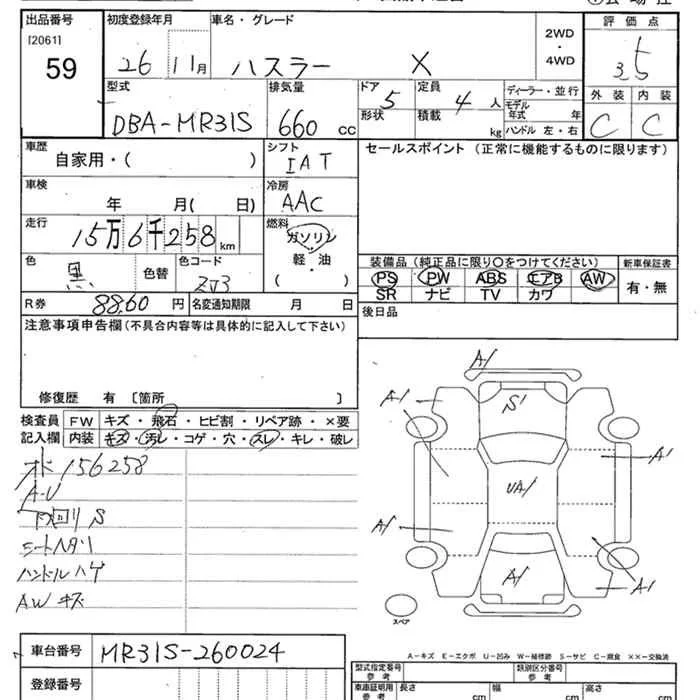 出品番号 初度登録年月 車名・グレード 2WD・4WD 評価点
[2061] 59 26 11月 ハスラー X 3.5
型式 排気量 ドア 定員 ディーラー・並行 外装 内装
DBA-MR31S 660 cc 5 4人 モデル年式 年 C C
形状 積載 kg ハンドル 左・右
車歴 シフト セールスポイント(正常に機能するものに限ります)
自家用・( ) IAT
車検 冷房
年 月( 日) AAC
走行 燃料
15万6千258km ガソリン
軽・油
( )
色 色替 色コード 装備品(純正品に限り○をつけてください) 新車保証書
黒 ZJ3 PS PW ABS エアB AW 有・無
SR ナビ TV カワ
R券 8860円 名変通知期限 月 日 後日品
注意事項申告欄(不具合内容等は具体的に記入して下さい)
修復歴 有 〔箇所 〕
検査員 FW キズ・飛石・ヒビ割・リペア跡・×要
記入欄 内装 キズ・汚レ・コゲ・穴・スレ・キレ・破レ
オド156258
A-U
下回リS
シートヘタリ
ハンドルハゲ
AWキズ
A1
A1
S1
A1
UA1
A1
A1
A1
スペア
A-キズ E-エクボ U-凹み W-補修跡 S-サビ C-腐食 ××-交換済
車台番号 MR31S-260024
登録番号
型式指定番号 参考 類別区分番号 参考
車庫証明用 参考 長さ cm 幅 cm 高さ cm